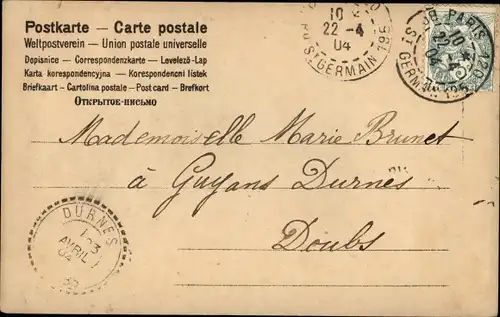 Postkarte — Carte postale
Weltpostverein — Union postale universelle
Dopisnice — Correspondenzkarte — Levelező-Lap
Karta korespondencyjna — Korespondencni listek
Briefkaart - Cartolina postale - Post card - Brefkort
Открытое-письмо
10
22 - 4
04
ST GERMAIN
PARIS
10
22 - 4
04
ST GERMAIN
Mademoiselle Marie Brunet
à Guyans Durnes
Doubs
DURNES
23
AVRIL
04